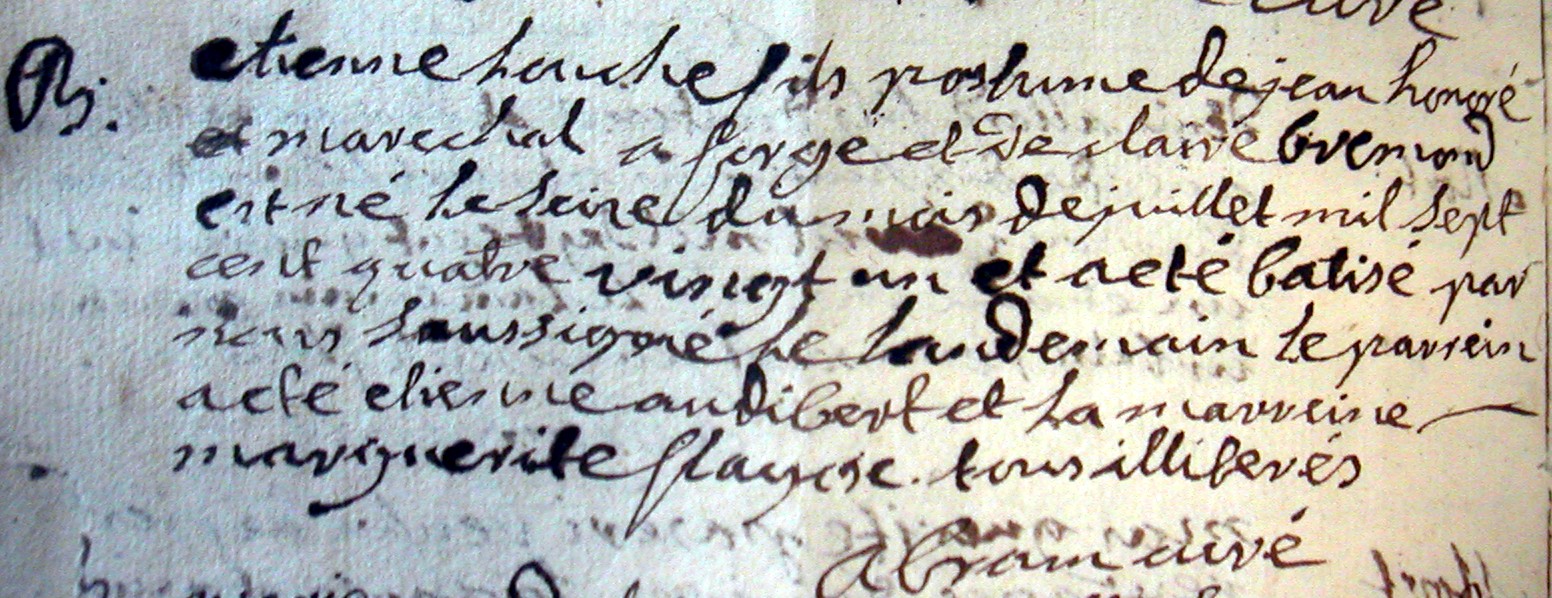 curé
B. etienne houche fils postume de jean honoré
et marechal a forge et de claire bremond
est né le seize du mois de juillet mil sept
cent quatre vingt un et a eté batisé par
nous soussigné le landemain le parrein
a eté etienne audibert et la marreine
marguerite flayosc. tous illiterés
abram curé